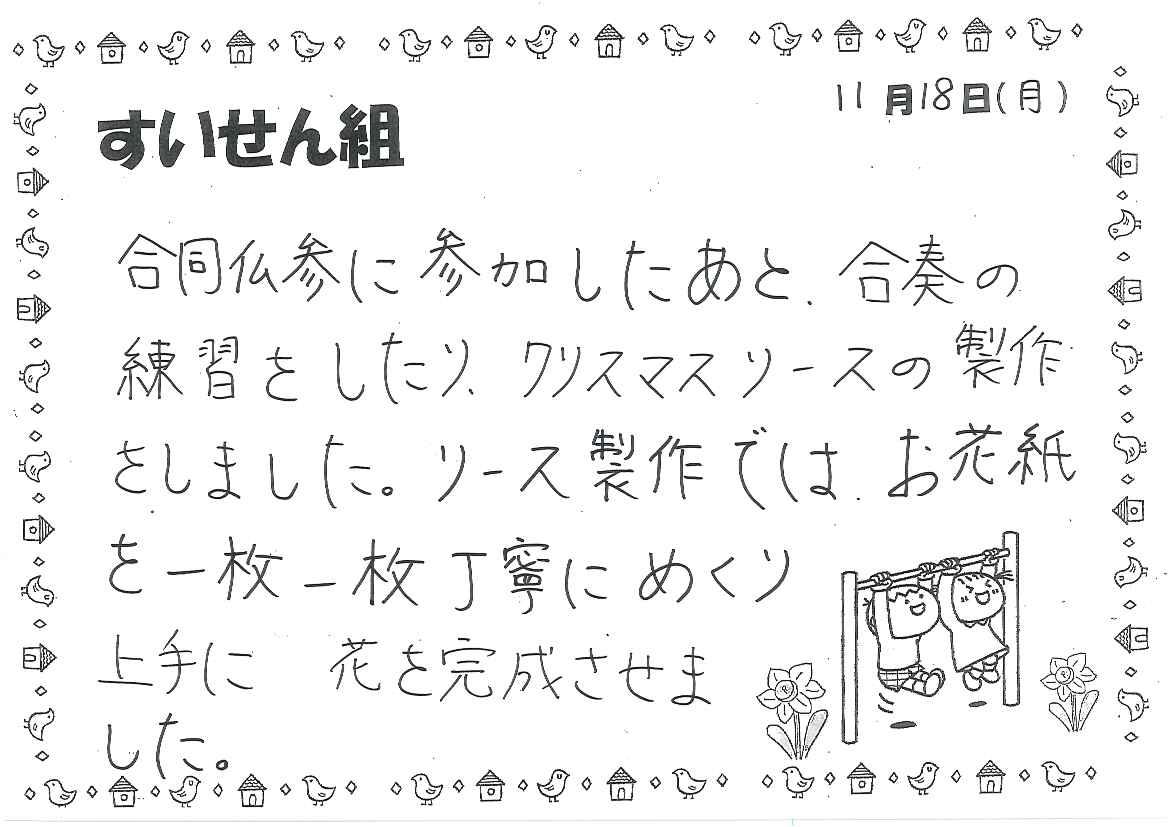 11月18日(月)
すいせん組
合同仏参に参加したあと、合奏の
練習をしたり、クリスマスリースの製作
をしました。リース製作では、お花紙
を一枚一枚丁寧にめくり
上手に 花を完成させま
した。